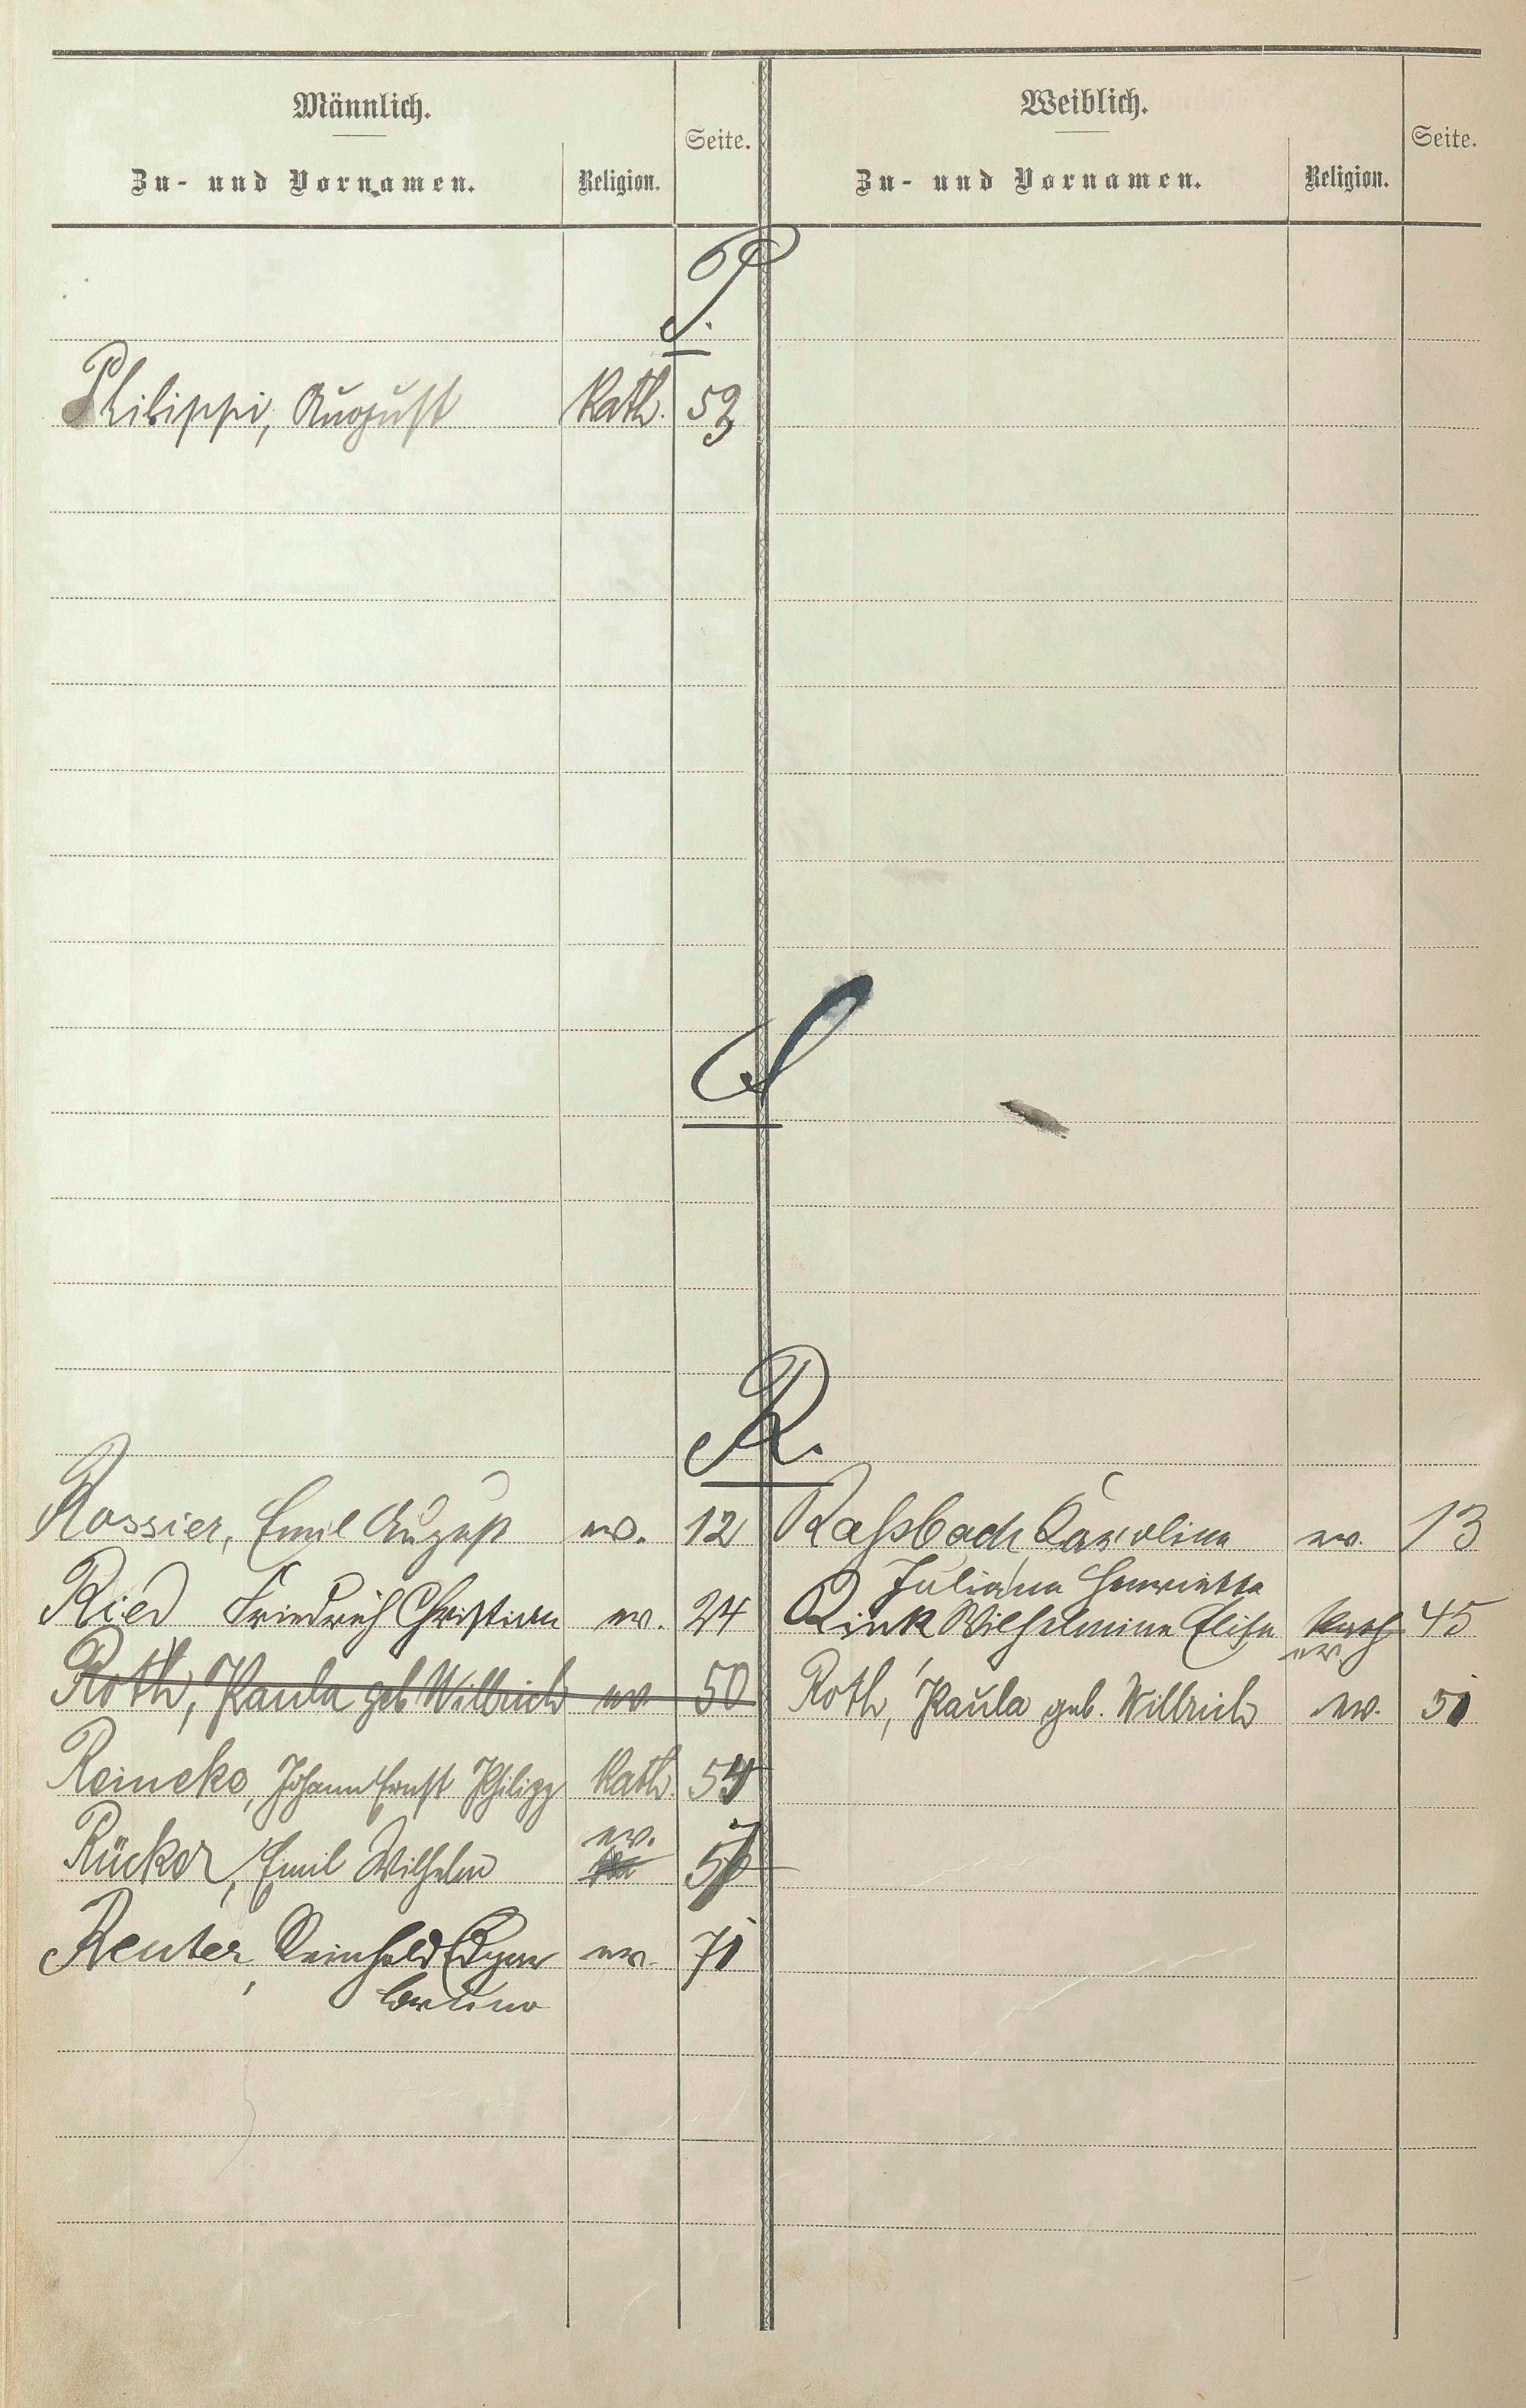 Männlich.
Zu- und Vornamen.
Religion.
Seite.
Weiblich.
Zu- und Vornamen.
Religion.
Seite.
P.
Philippi, August Kath. 53
R.
Rossier, Emil August ev. 12
Raßbach Karoline ev. 13
Ried Friedrich Christian ev. 24
Juliane Henriette
Rink Wilhelmine Elise Kath 45
ev.
Roth, Paula geb Willrich ev 50
Roth, Paula geb. Willrich ev. 51
Reineke, Johann Ernst Philipp Kath. 54
ev.
Rücker, Emil Wilhelm 57
Reuter, Reinhold ev. 71
Bruno